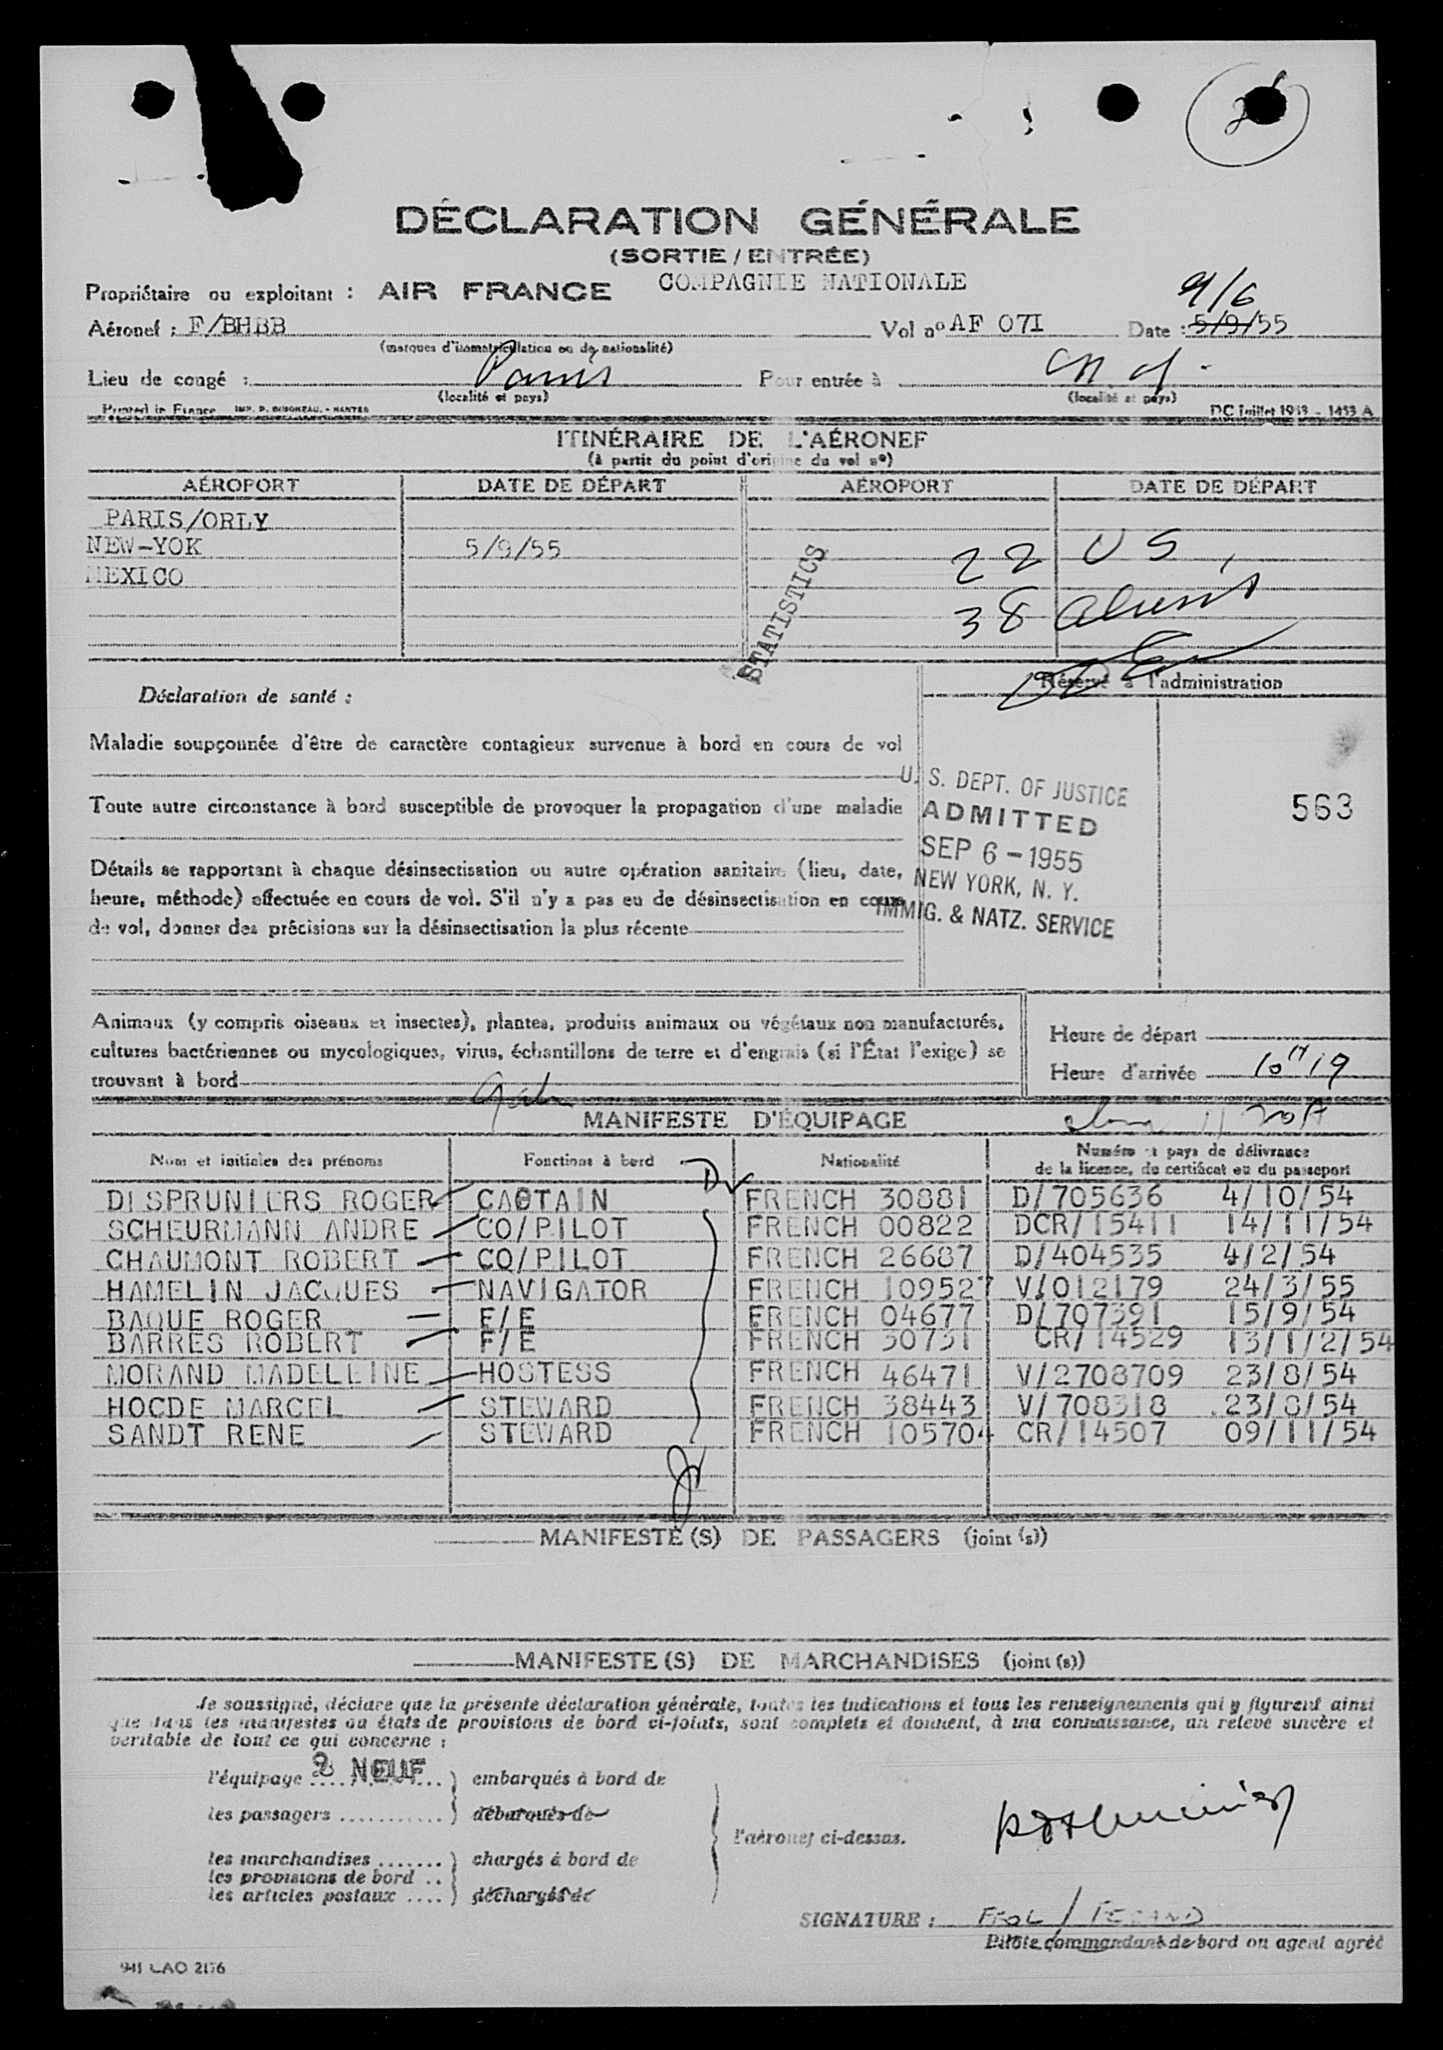 DÉCLARATION GÉNÉRALE
(SORTIE / ENTRÉE)
Propriétaire ou exploitant : AIR FRANCE COMPAGNIE NATIONALE
9/6
Aéronef : F/BHBB Vol nº AF 071 Date : 5/9/55
(marques d'immatriculation ou de nationalité)
Lieu de congé : Paris Pour entrée à N.Y.
(localité et pays) (localité et pays)
Printed in France DC Juillet 1953 - 1453 A
ITINÉRAIRE DE L'AÉRONEF
(à partir du point d'origine du vol nº)
AÉROPORT DATE DE DÉPART AÉROPORT DATE DE DÉPART
PARIS/ORLY
NEW-YOK 5/9/55 22 US
MEXICO
38 Aliens
STATISTICS
Déclaration de santé :
Réservé à l'administration
Maladie soupçonnée d'être de caractère contagieux survenue à bord en cours de vol
U. S. DEPT. OF JUSTICE
Toute autre circonstance à bord susceptible de provoquer la propagation d'une maladie
ADMITTED
563
SEP 6 - 1955
Détails se rapportant à chaque désinsectisation ou autre opération sanitaire (lieu, date,
NEW YORK, N. Y.
heure, méthode) effectuée en cours de vol. S'il n'y a pas eu de désinsectisation en cours
IMMIG. & NATZ. SERVICE
de vol, donner des précisions sur la désinsectisation la plus récente
Animaux (y compris oiseaux et insectes), plantes, produits animaux ou végétaux non manufacturés,
cultures bactériennes ou mycologiques, virus, échantillons de terre et d'engrais (si l'État l'exige) se
trouvant à bord
Heure de départ
Heure d'arrivée 10H19
MANIFESTE D'ÉQUIPAGE
Nom et initiales des prénoms Fonctions à bord Nationalité Numéro et pays de délivrance
de la licence, du certificat ou du passeport
DESPRUNIERS ROGER CAPTAIN FRENCH 30881 D/705636 4/10/54
SCHEURMANN ANDRE CO/PILOT FRENCH 00822 DCR/15411 14/11/54
CHAUMONT ROBERT CO/PILOT FRENCH 26687 D/404535 4/2/54
HAMELIN JACQUES NAVIGATOR FRENCH 109527 V/012179 24/3/55
BAQUE ROGER F/E FRENCH 04677 D/707391 15/9/54
BARRES ROBERT F/E FRENCH 30731 CR/14529 13/1/2/54
MORAND MADELEINE HOSTESS FRENCH 46471 V/2708709 23/8/54
HOCDE MARCEL STEWARD FRENCH 38443 V/708318 23/8/54
SANDT RENE STEWARD FRENCH 105704 CR/14507 09/11/54
MANIFESTE (S) DE PASSAGERS (joint (s))
MANIFESTE (S) DE MARCHANDISES (joint (s))
Je soussigné, déclare que la présente déclaration générale, toutes les indications et tous les renseignements qui y figurent ainsi
que dans les manifestes ou états de provisions de bord ci-joints, sont complets et donnent, à ma connaissance, un relevé sincère et
véritable de tout ce qui concerne :
l'équipage 9 NEUF embarqués à bord de
les passagers débarqués de
l'aéronef ci-dessus.
les marchandises chargés à bord de
les provisions de bord
les articles postaux déchargés de
SIGNATURE :
Pilote commandant de bord ou agent agréé